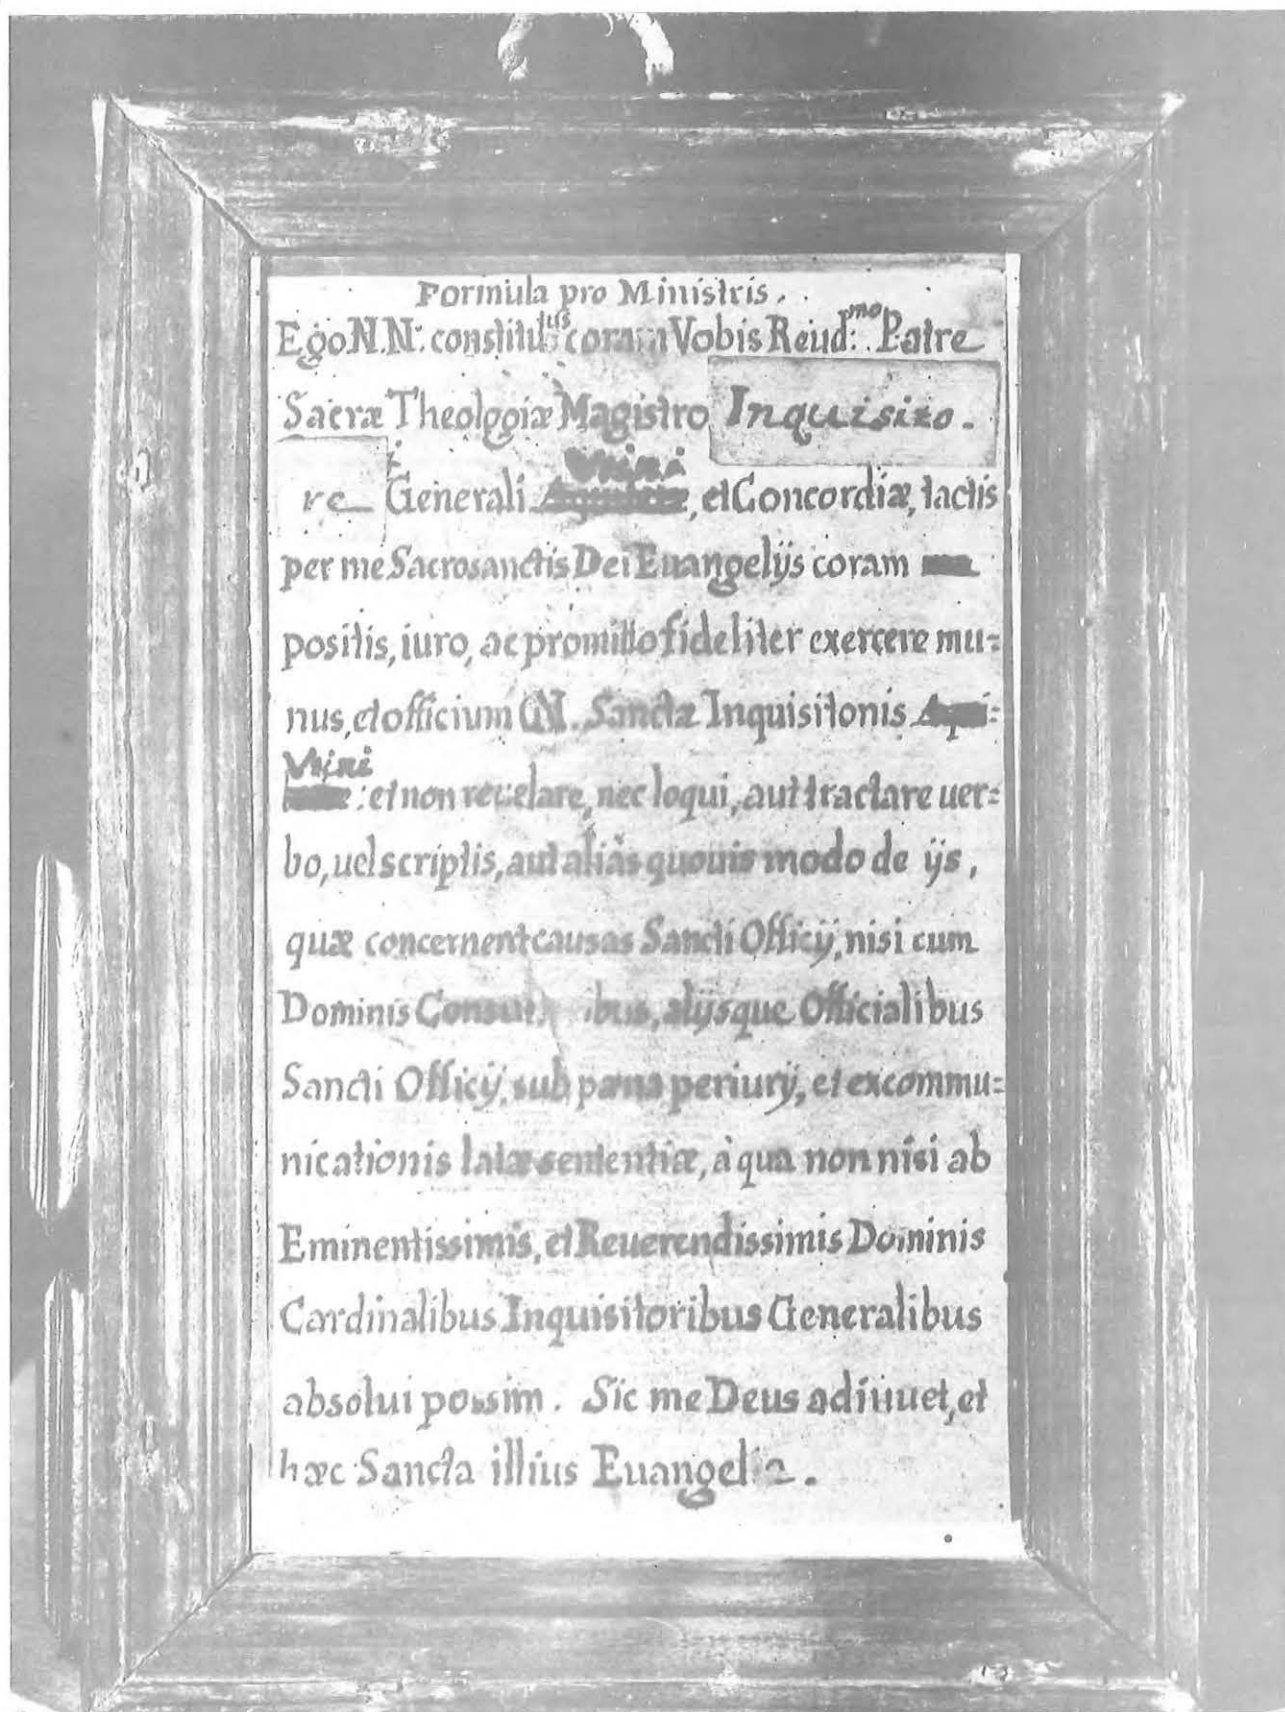 Formula pro Ministris.
Ego N.N: constitutus coram Vobis Reud:mo Patre
Sacræ Theologiæ Magistro Inquisito-
re Generali Utini, et Concordiæ, tactis
per me Sacrosanctis Dei Euangelijs coram
positis, iuro, ac promitto fideliter exercere mu=
nus, et officium N. Sanctæ Inquisitonis
Utini: et non reuelare, nec loqui, aut tractare uer=
bo, uel scriptis, aut aliàs quouis modo de ijs,
quæ concernent causas Sancti Officij, nisi cum
Dominis ibus, alijsque Officialibus
Sancti Officij, sub pæna periurij, et excommu=
nicationis latæ sententiæ, à qua non nisi ab
Eminentissimis, et Reuerendissimis Dominis
Cardinalibus Inquisitoribus Generalibus
absolui possim. Sic me Deus adiuuet, et
hæc Sancta illius Euangelia.